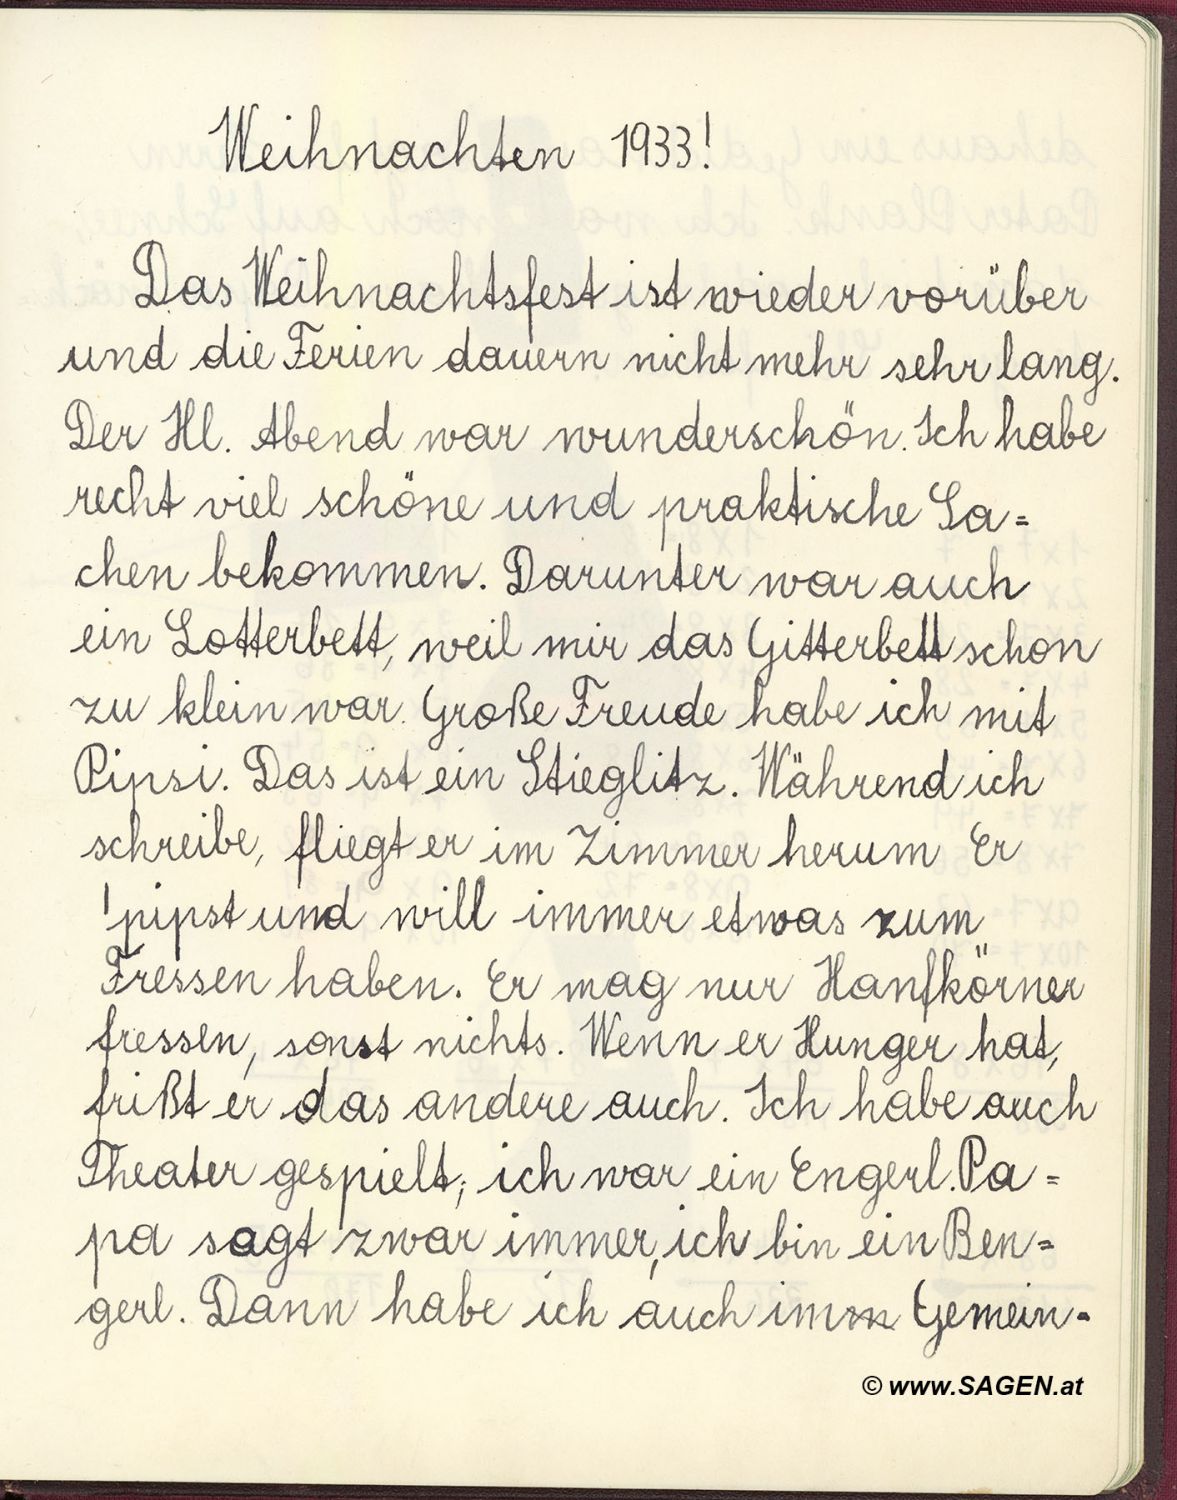 Weihnachten 1933!
Das Weihnachtsfest ist wieder vorüber
und die Ferien dauern nicht mehr sehr lang.
Der Hl. Abend war wunderschön. Ich habe
recht viel schöne und praktische Sa=
chen bekommen. Darunter war auch
ein Lotterbett, weil mir das Gitterbett schon
zu klein war. Große Freude habe ich mit
Pipsi. Das ist ein Stieglitz. Während ich
schreibe, fliegt er im Zimmer herum Er
pipst und will immer etwas zum
Fressen haben. Er mag nur Hanfkörner
fressen, sonst nichts. Wenn er Hunger hat,
frißt er das andere auch. Ich habe auch
Theater gespielt; ich war ein Engerl. Pa=
pa sagt zwar immer, ich bin ein Ben=
gerl. Dann habe ich auch im Gemein=
© www.SAGEN.at